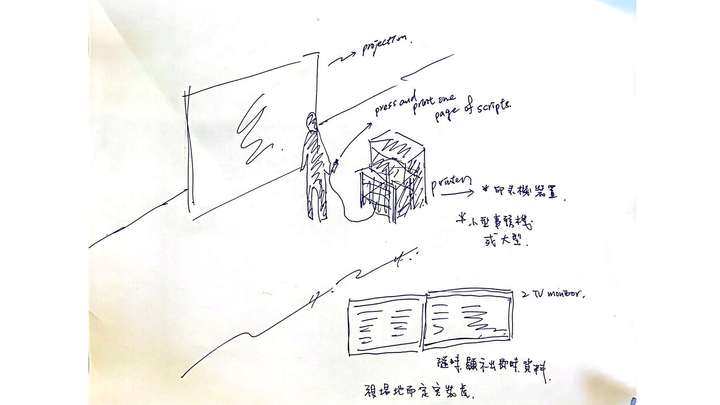 projection.
press and print one
page of scripts.
printer
*印表機裝置.
*小型事務機
或大型.
2 TV monitor.
隨時顯示出即時資料.
視場地而定安裝處